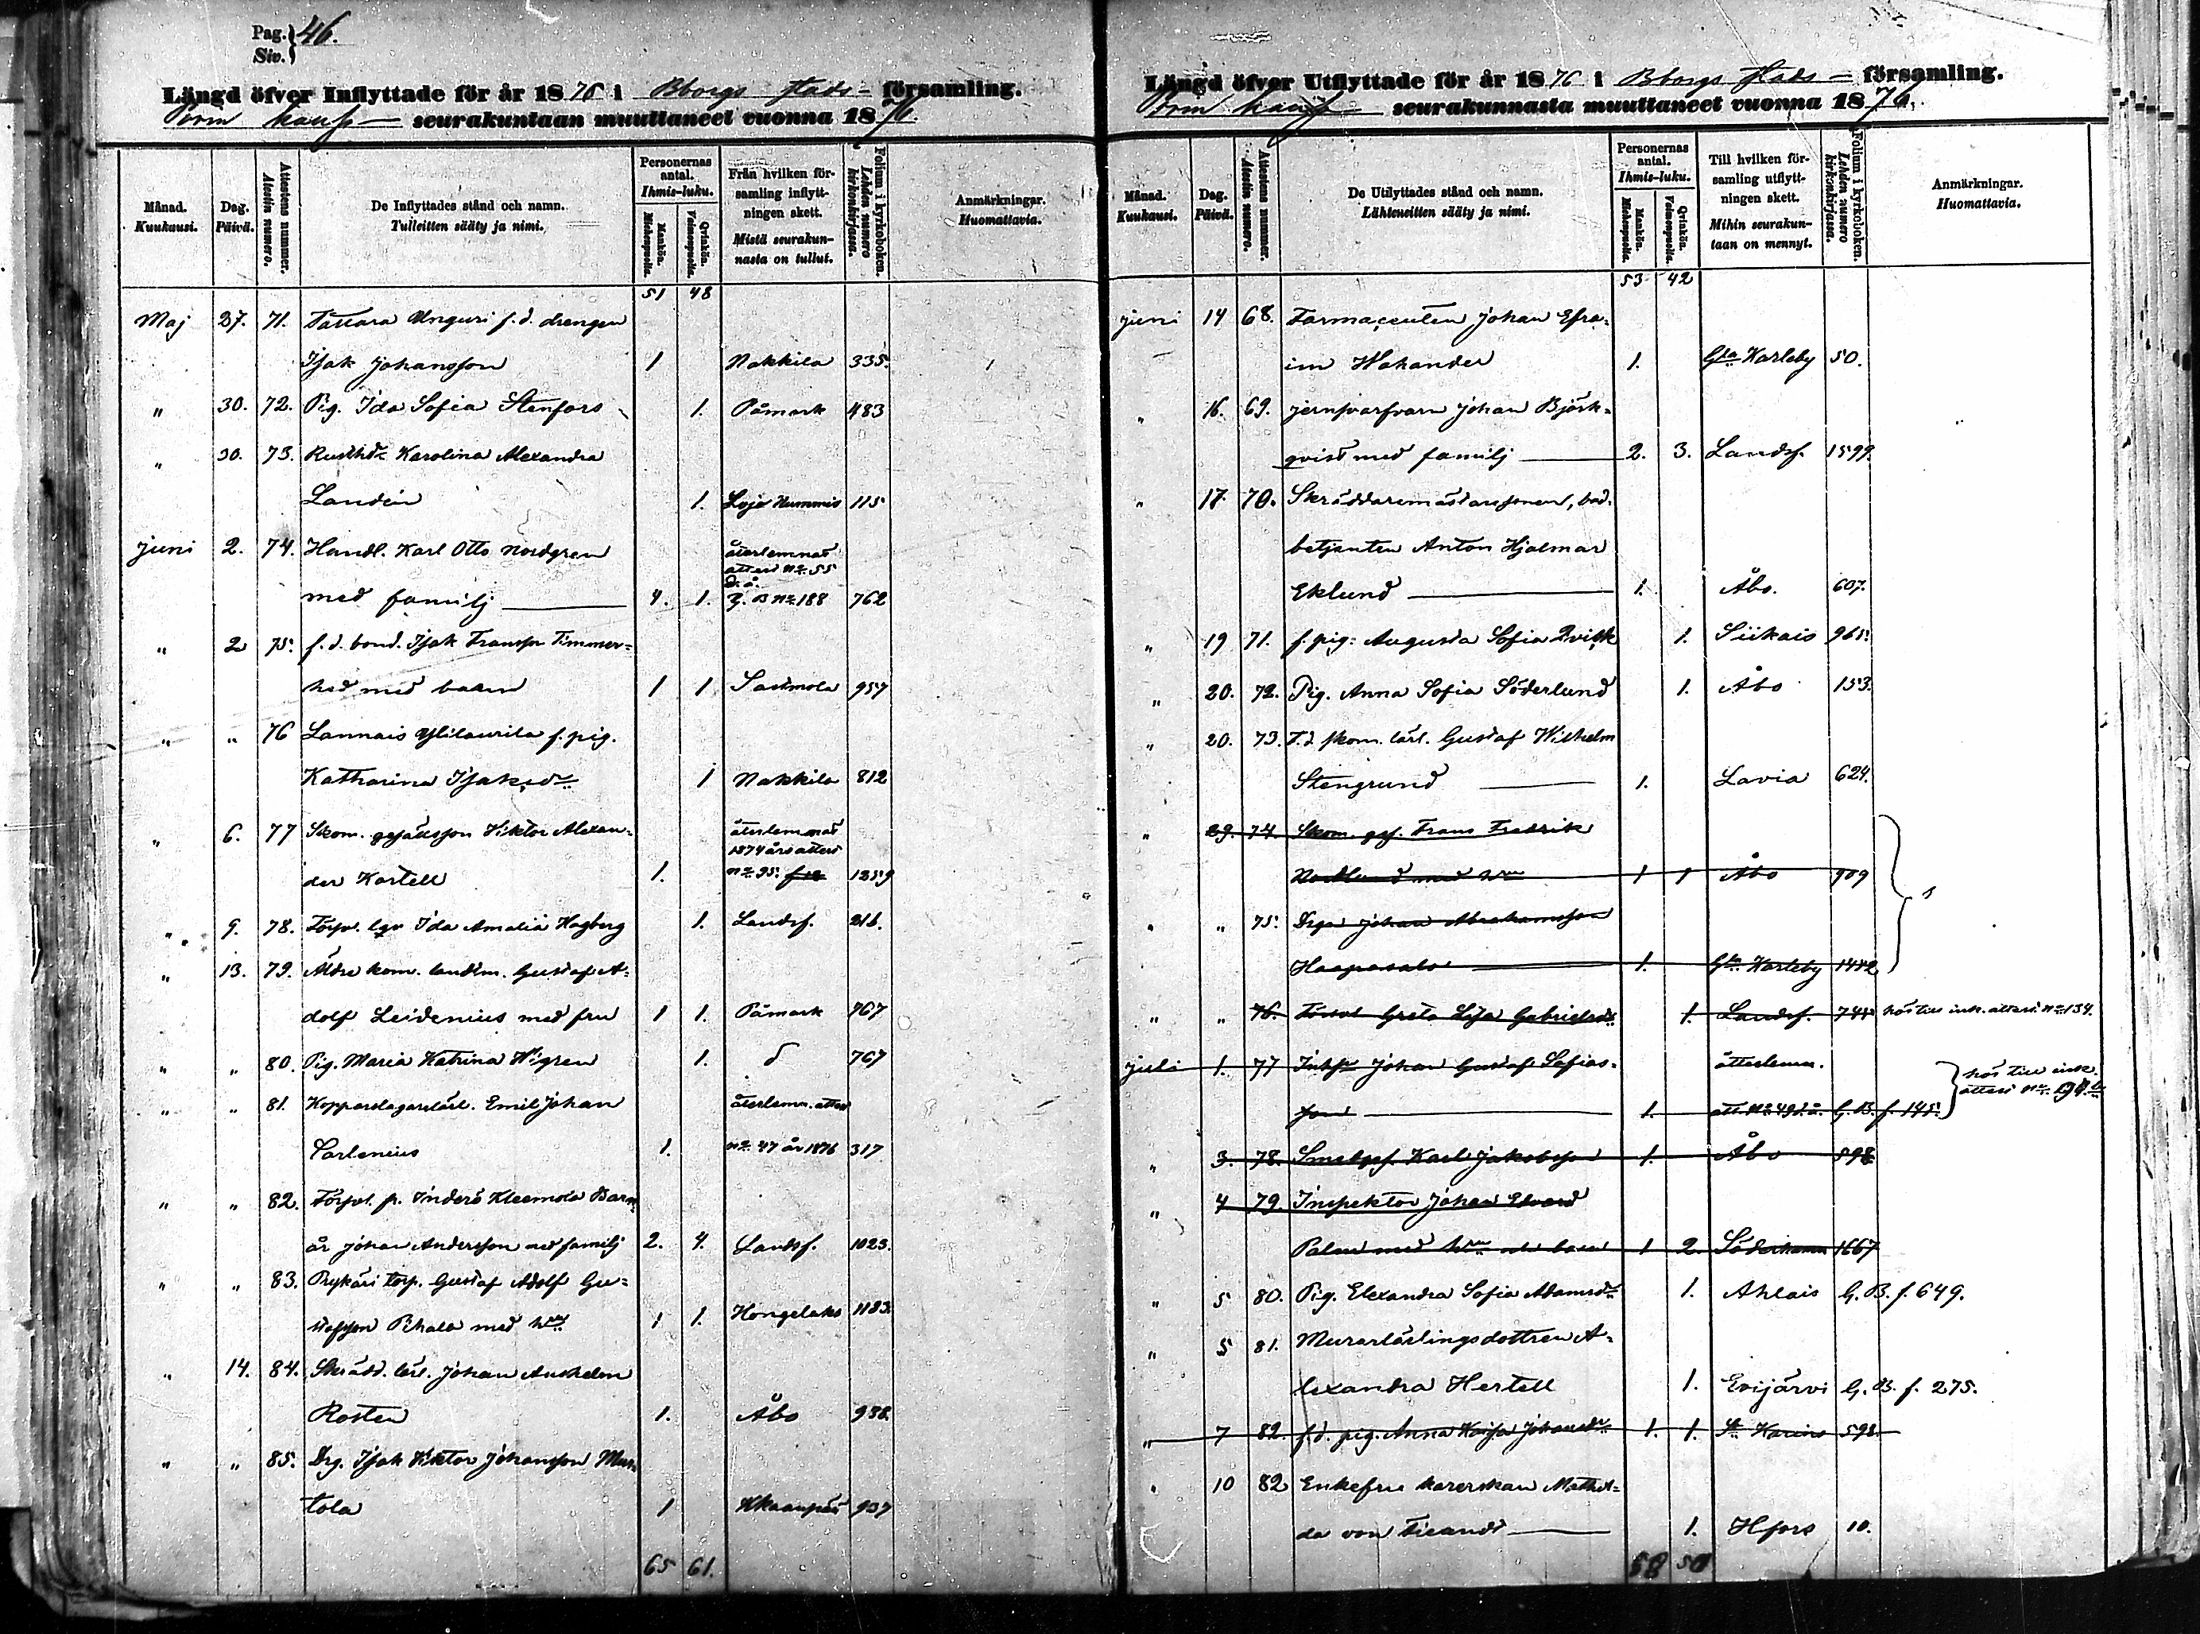 Pag. Siv. } 46.
Längd öfver Inflyttade för år 1876 i Bborgs stads- församling.
Porin kaup- seurakuntaan muuttaneet vuonna 1876.
Månad. Kuukausi.
Dag. Päivä.
Attestens nummer. Alestin numero.
De Inflyttades stånd och namn. Tulleitten sääty ja nimi.
Personernas antal. Ihmis-luku.
Mankön. Miehenpuolia.
Qvinkön. Vaimonpuolia.
Från hvilken församling inflyttningen skett. Mistä seurakunnasta on tullut.
Folium i kyrkoboken. Lehden numero kirkonkirjassa.
Anmärkningar. Huomattavia.
51 48
Maj 27. 71. Tattara Unguri f.d. drengen
Isak Johansson 1 Nakkila 335.
" 30. 72. Pig. Ida Sofia Stenfors 1. Påmark 483
" 30. 73. Karolina Alexandra
Landén 1. Lojo Nummis 115
juni 2. 74. Handl. Karl Otto Nordgren återlemnat attest No 55 d. å.
med familj 4. 1. B No 188 762
" 2 75. f.d. bond. Isak Fransson Timmer-
hed med barn 1 1 Sastmola 957
" " 76 Lannais Ylitaurila f. pig.
Katharina Isaksdr 1 Nakkila 812
" 6. 77 Skom. gesällsson Viktor Alexan- återlemnat 1874 års attest
der Kortell 1. No 95. 1259
" 9. 78. Ida Amalia Hagberg 1. Landsf. 216.
" 13. 79. Äldre kom. landtm. Gustaf A-
dolf Leidenius med fru 1 1. Påmark 767
" " 80. Pig. Maria Katrina Wigren 1. d 767
" " 81. Kopparslagarelärl. Emil Johan återlemn. attest
Carlenius 1. No 47 år 1876 317
" " 82. Torpd. fr. Inderö Kleemola Barn
år Johan Andersson med familj 2. 4. Landsf. 1023.
" " 83. torp. Gustaf Adolf Gu-
stafsson med hru 1 1. Hongelaks 1183.
" 14. 84. Skrädd. lärl. Johan Anshelm
Rosten 1. Åbo 938.
" " 85. Drg. Isak Viktor Johansson Mus-
tola 1 Kkaanpää 937
65 61.
Längd öfver Utflyttade för år 1876 i Bborgs stads- församling.
Porin kaup- seurakunnasta muuttaneet vuonna 1876.
Månad. Kuukausi.
Dag. Päivä.
Attestens nummer. Alestin numero.
De Utflyttades stånd och namn. Lähteneitten sääty ja nimi.
Personernas antal. Ihmis-luku.
Mankön. Miehenpuolia.
Qvinkön. Vaimonpuolia.
Till hvilken församling utflyttningen skett. Mihin seurakuntaan on mennyt.
Folium i kyrkoboken. Lehden numero kirkonkirjassa.
Anmärkningar. Huomattavia.
53 42
juni 14 68. Farmaceuten Johan Efra-
im Wahander 1. Gla Karleby 50.
" 16. 69. jernsvarfvarn Johan Björk-
qvist med familj 2. 3. Landsf. 1599.
" 17. 70. Skräddaremästarssonen, bod-
betjenten Anton Hjalmar
Eklund 1. Åbo. 607.
" 19 71. f. pig: Augusta Sofia Qvick 1. Siikais 965.
" 20. 72. Pig. Anna Sofia Söderlund 1. Åbo 153.
" 20. 73. F.d skom. lärl. Gustaf Wilhelm
Stengrund 1. Lavia 624.
" 29. 74. Skom. ges. Frans Fredrik
Nordlund med hru 1 1 Åbo 909
" " 75. Drgn Johan Abrahamsson
Haapasalo 1. Gla Karleby 1442
" " 76. Greta Lisa Gabrielsdr 1. Landsf. 744 hös till ink. attest No 134.
juli 1. 77 Johan Gustaf Safias- återlemn.
son 1. att. No 49 d. å. G. B. f. 145. } hös till ink. attest No
" 3. 78. Smedges. Karl Jakobsson 1. Åbo 598
" 4 79. Inspektor Johan Edvard
Palm med hru och barn 1 2. Söderhamn 1667
" 5 80. Pig. Elexandra Sofia Adamsdr 1. Ahlais G. B. f. 649.
" 5 81. Murarlärlingsdottren A-
lexandra Hertell 1. Evijärvi G. B. f. 275.
" 7 82. f.d. pig. Anna Kaisa Johansdr 1. 1. St Karins 598.
" 10 82 Enkefru Mathil-
da von Ticandt 1. Hfors 10.
58 50